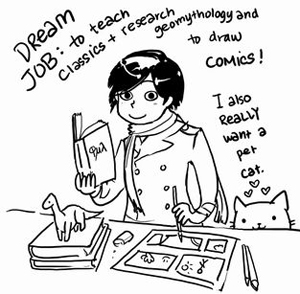 DREAM
JOB: to teach
Classics + research
geomythology and
to draw
COMICS!
I also
REALLY
want a
pet
cat.